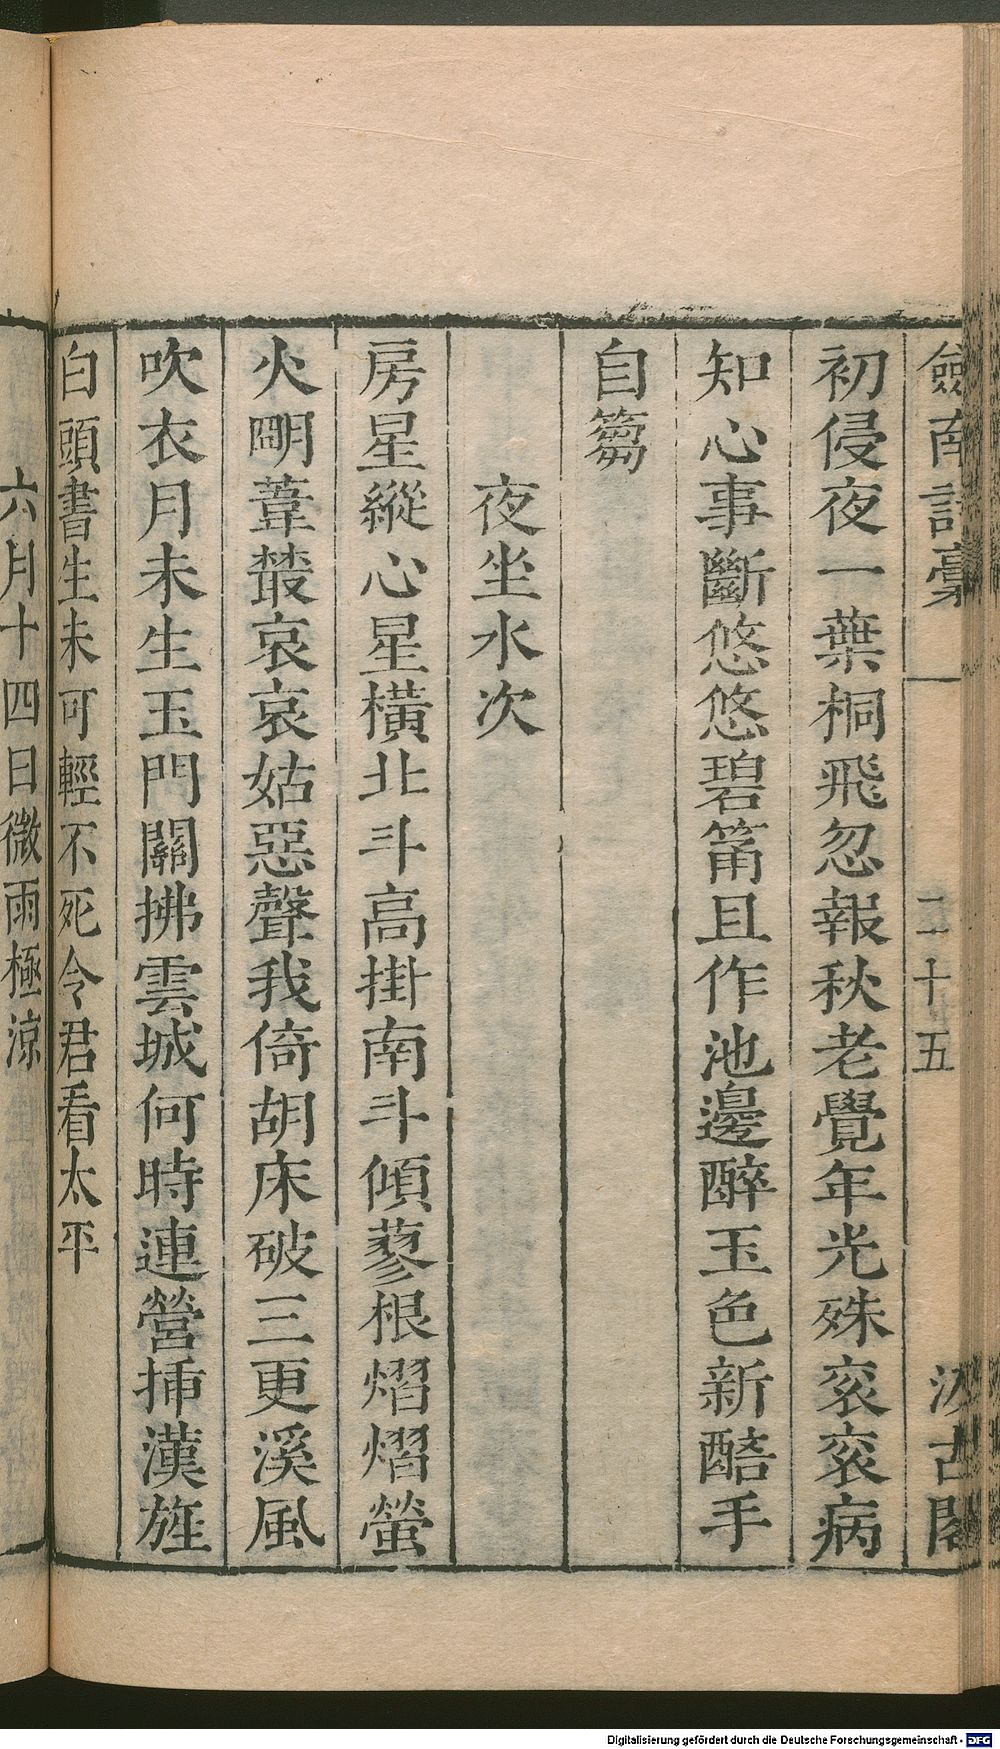 劍南詩稾 二十五 汲古閣
初侵夜一葉桐飛忽報秋老覺年光殊衮衮病
知心事斷悠悠碧筩且作池邊醉玉色新醅手
自篘
夜坐水次
房星縱心星橫北斗高掛南斗傾蓼根熠熠螢
火朙葦叢哀哀姑惡聲我倚胡床破三更溪風
吹衣月未生玉門關拂雲城何時連營揷漢旌
白頭書生未可輕不死令君看太平
六月十四日微雨極涼
Digitalisierung gefördert durch die Deutsche Forschungsgemeinschaft - DFG